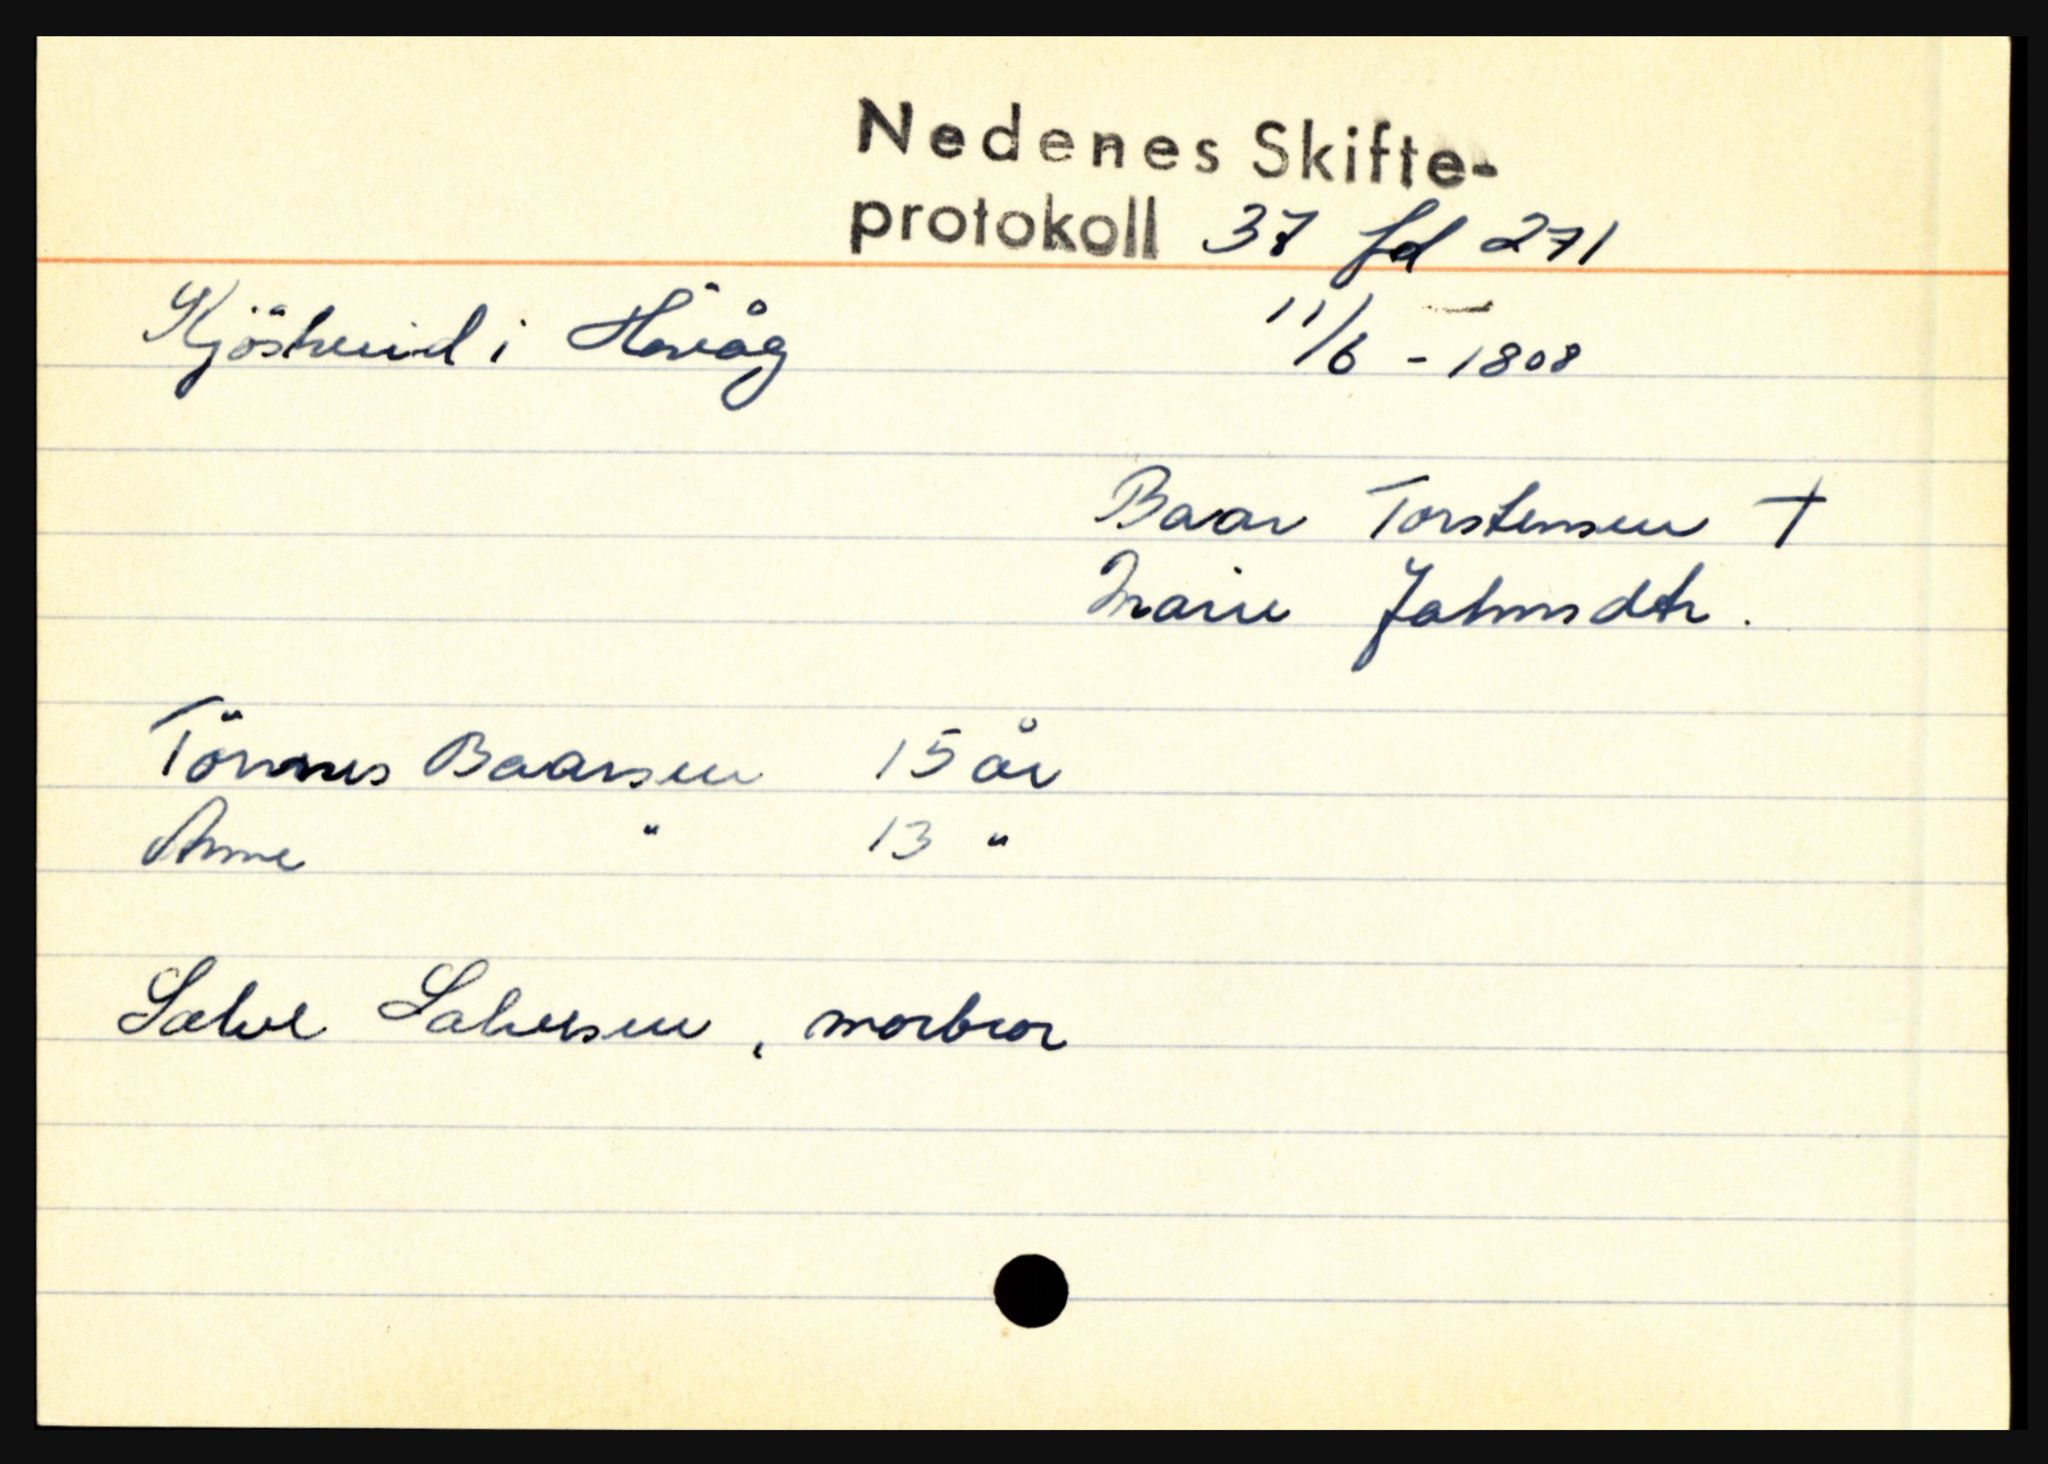 Nedenes Skifte-
protokoll 37 fol 271
Kjöstveid i Høvåg 11/6 - 1808
Baar Torstensen †
Marie Jahnsdtr.
Tönnes Baarsen 15 år
Anne " 13 "
Salve Salvesen, morbror